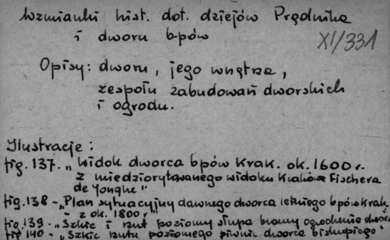 Wzmianki hist. dot. dziejów Prądnika
i dworu bpów
XI/331
Opisy: dworu, jego wnętrza,
zespołu zabudowań dworskich
i ogrodu.
Ilustracje:
fig. 137. „Widok dworca bpów Krak. ok. 1600 r.
z miedziorytowanego widoku Krakowa Fischera
de Jonghe"
fig. 138 - „Plan sytuacyjny dawnego dworca letniego bpów krak.
- z ok. 1800 r."
fig. 139 - „Szkic i rzut poziomy słupa bramy ogrodzenia dworca
fig 140 - „Szkic rzutu poziomego piwnic dworca biskupiego"